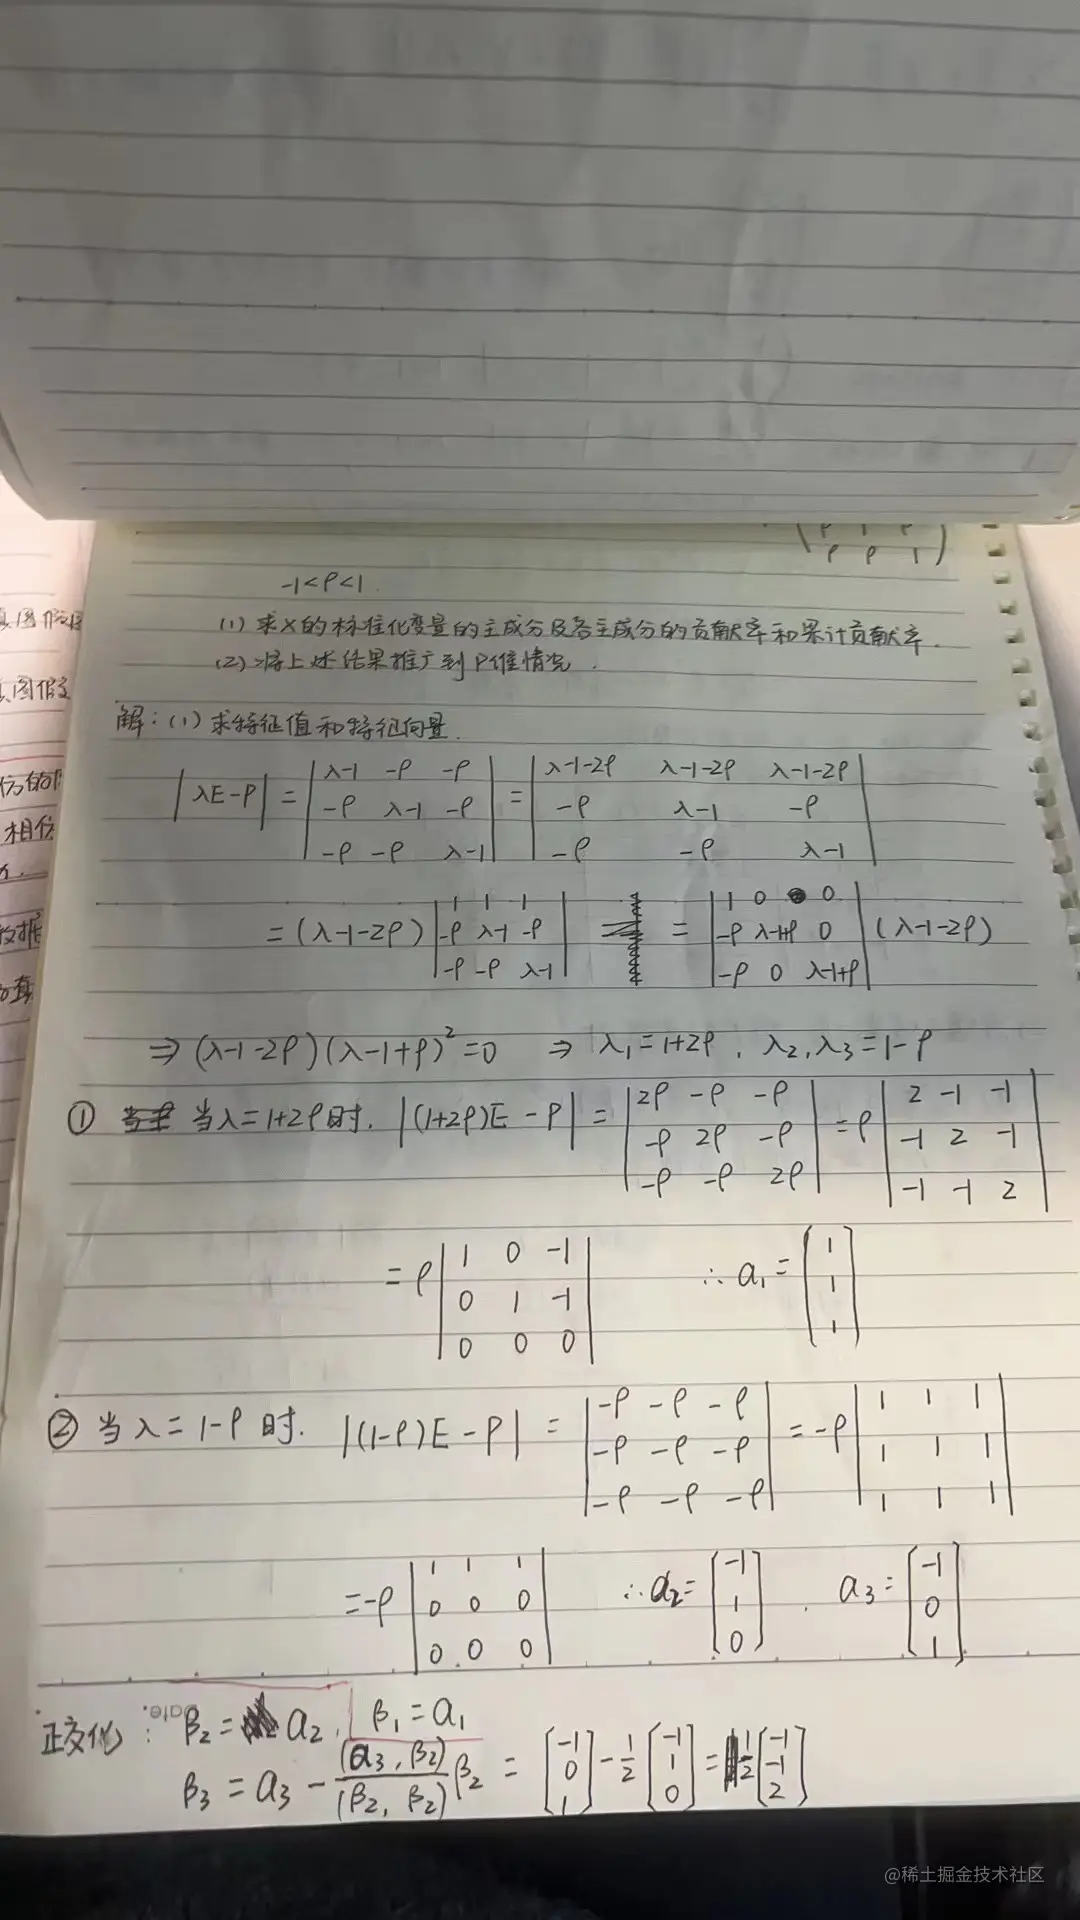 ρ 1 ρ
ρ ρ 1
-1<ρ<1.
(1) 求X的标准化变量的主成分及各主成分的贡献率和累计贡献率.
(2) 将上述结果推广到P维情况.
解: (1) 求特征值和特征向量.
|λE-P| = |λ-1 -ρ -ρ; -ρ λ-1 -ρ; -ρ -ρ λ-1| = |λ-1-2ρ λ-1-2ρ λ-1-2ρ; -ρ λ-1 -ρ; -ρ -ρ λ-1|
= (λ-1-2ρ) |1 1 1; -ρ λ-1 -ρ; -ρ -ρ λ-1| = |1 0 0; -ρ λ-1+ρ 0; -ρ 0 λ-1+ρ| (λ-1-2ρ)
⇒ (λ-1-2ρ)(λ-1+ρ)²=0 ⇒ λ₁=1+2ρ, λ₂,λ₃=1-ρ
① 当λ=1+2ρ时. |(1+2ρ)E-P| = |2ρ -ρ -ρ; -ρ 2ρ -ρ; -ρ -ρ 2ρ| = ρ |2 -1 -1; -1 2 -1; -1 -1 2|
= ρ |1 0 -1; 0 1 -1; 0 0 0| ∴ a₁= [1; 1; 1]
② 当λ=1-ρ时. |(1-ρ)E-P| = |-ρ -ρ -ρ; -ρ -ρ -ρ; -ρ -ρ -ρ| = -ρ |1 1 1; 1 1 1; 1 1 1|
= -ρ |1 1 1; 0 0 0; 0 0 0| ∴ a₂= [-1; 1; 0] , a₃= [-1; 0; 1]
Date.
正交化: β₂= a₂, β₁=a₁
β₃ = a₃ - (a₃, β₂)/(β₂, β₂) β₂ = [-1; 0; 1] - 1/2 [-1; 1; 0] = 1/2 [-1; -1; 2]
@稀土掘金技术社区